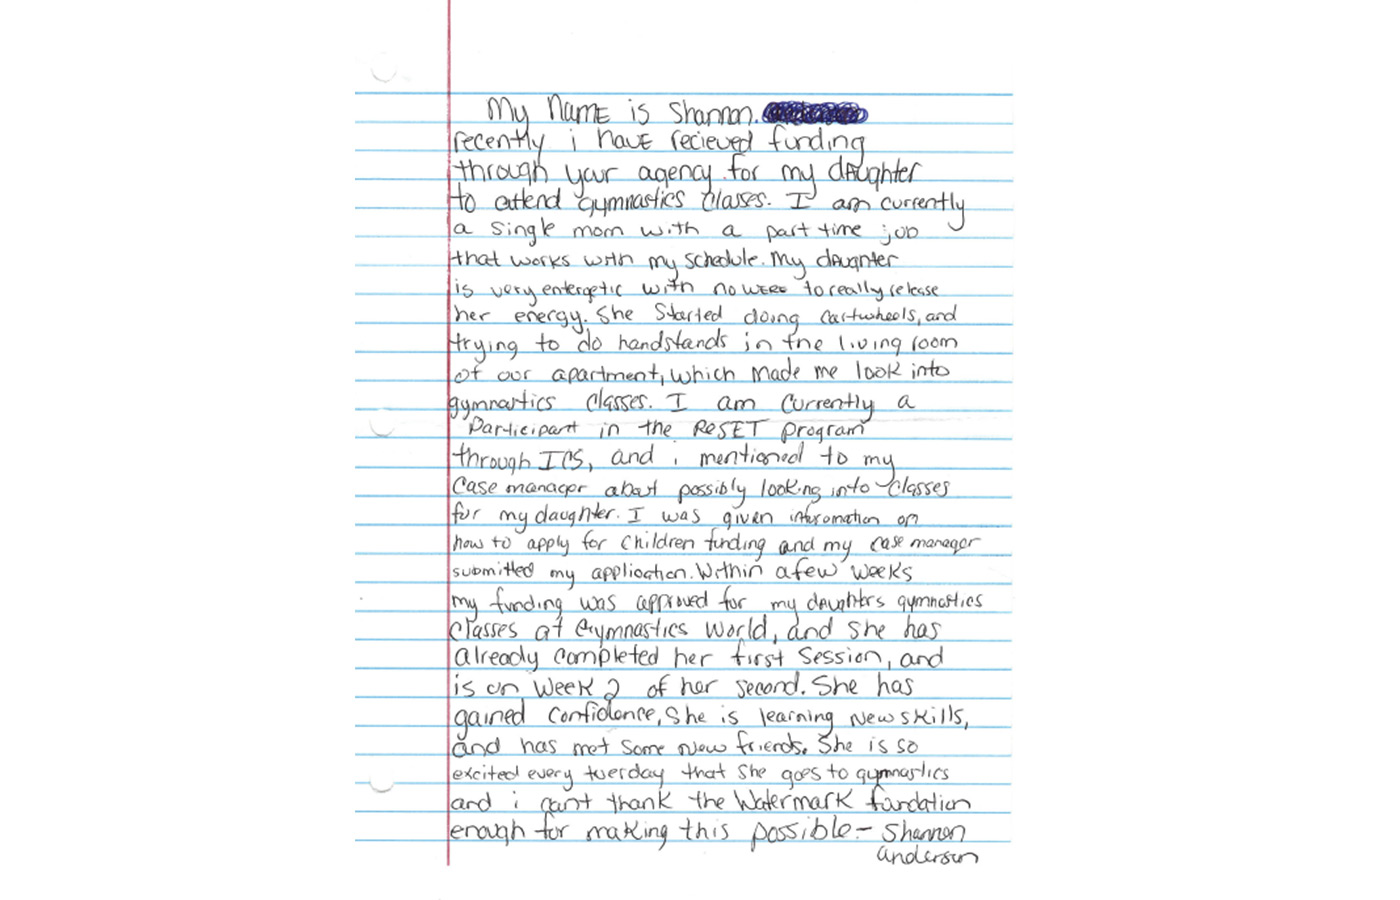 My NAME is Shannon.
recently i HAVE recieved funding
through your agency for my dAughter
to attend gymnastics classes. I am currently
a single mom with a part time job
that works with my schedule. My dAughter
is very entergetic with no WERE to really release
her energy. She Started doing cartwheels, and
trying to do handstands in the living room
of our apartment, which made me look into
gymnastics classes. I am currently a
Participant in the RESET program
through ICS, and i mentioned to my
Case manager about possibly looking into classes
for my daughter. I was given inforomation on
how to apply for children funding and my case manager
submitted my application. Within a few weeks
my funding was approved for my dAughters gymnastics
classes at Gymnastics World, and she has
already completed her first Session, and
is on Week 2 of her second. She has
gained confidence, She is learning New skills,
and has met Some New friends. She is so
excited every tuesday that she goes to gymnastics
and i can't thank the Watermark fundation
enough for making this possible - Shannon
anderson